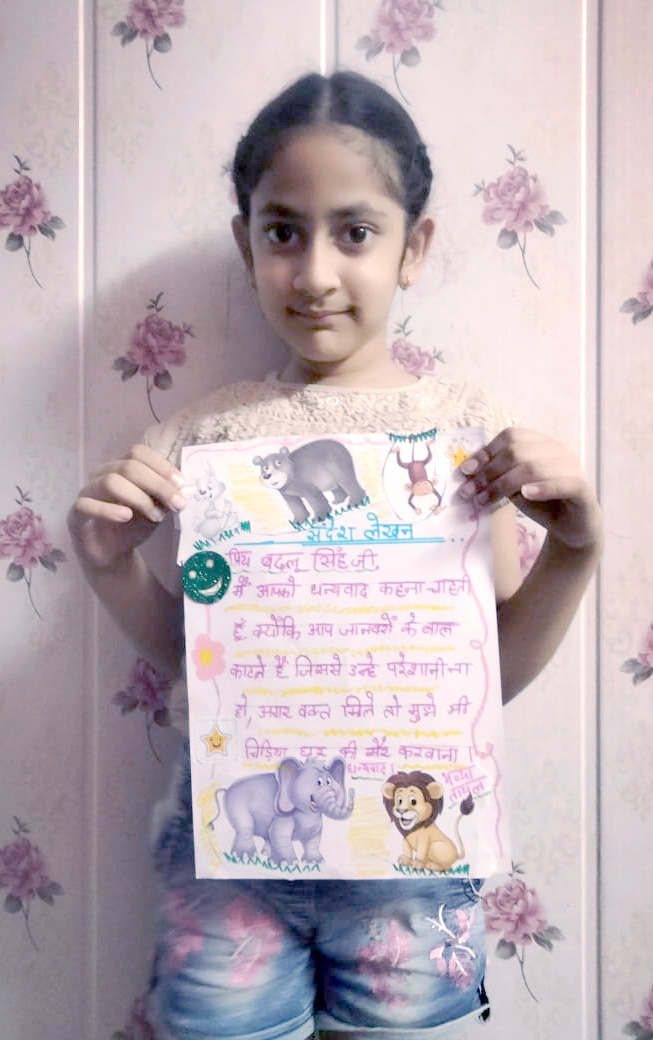 संदेश लेखन
प्रिय बदलू सिंह जी,
मैं आपको धन्यवाद कहना चाहती
हूँ क्योंकि आप जानवरों के बाल
काटते हैं जिससे उन्हे परेशानी ना
हो, अगर वक्त मिले तो मुझे भी
चिडिया घर की सैर करवाना ।
धन्यवाद।
भव्या
तायल